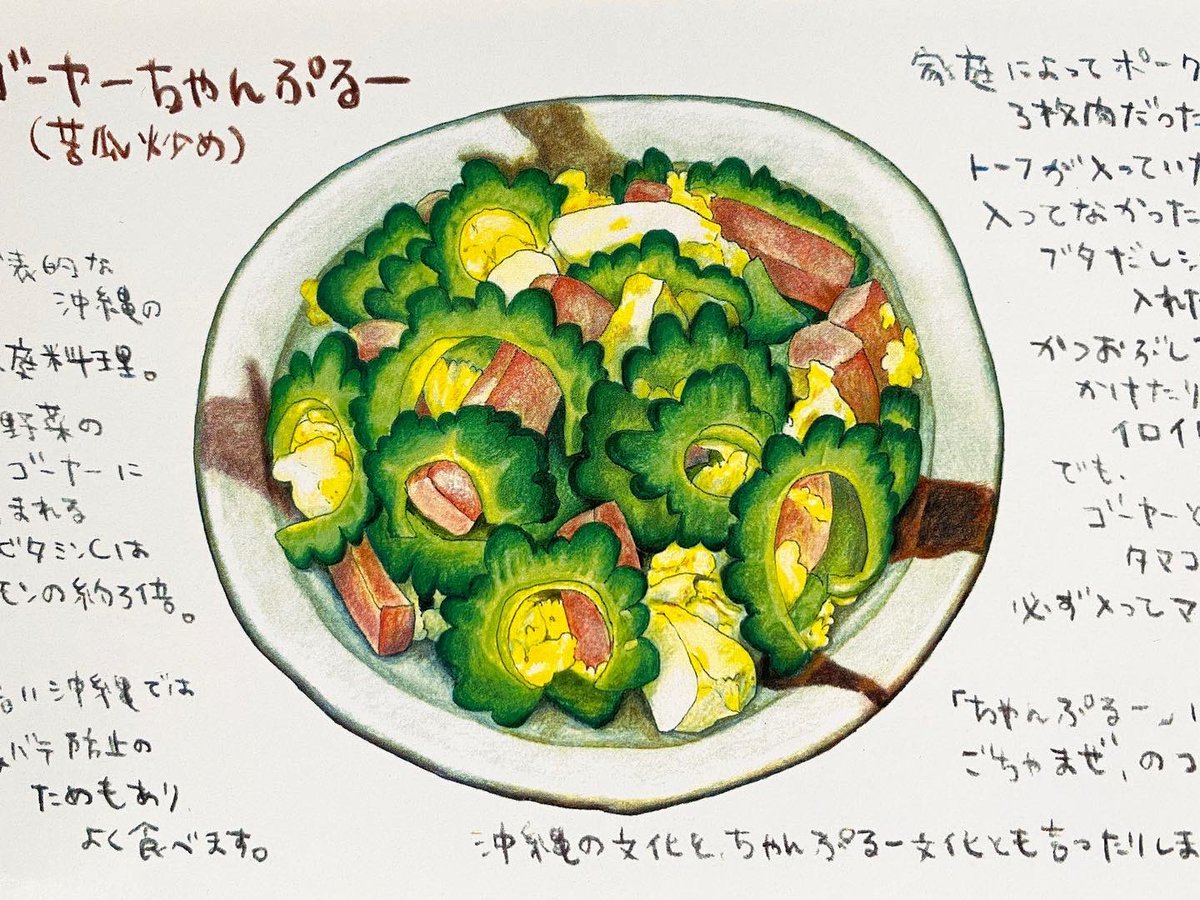 ゴーヤーちゃんぷるー
(苦瓜炒め)
代表的な
沖縄の
庭料理。
野菜の
ゴーヤーに
まれる
ビタミンCは
モンの約3倍。
暑い沖縄では
バテ防止の
ためもあり
よく食べます。
家庭によってポーク
3枚肉だった
トーフが入っていた
入ってなかった
ブタだし
入れた
かつおぶし
かけたり
イロイ
でも、
ゴーヤーと
タマゴ
必ず入ってマ
「ちゃんぷるー」
ごちゃまぜ、のコ
沖縄の文化を、ちゃんぷるー文化とも言ったりしま